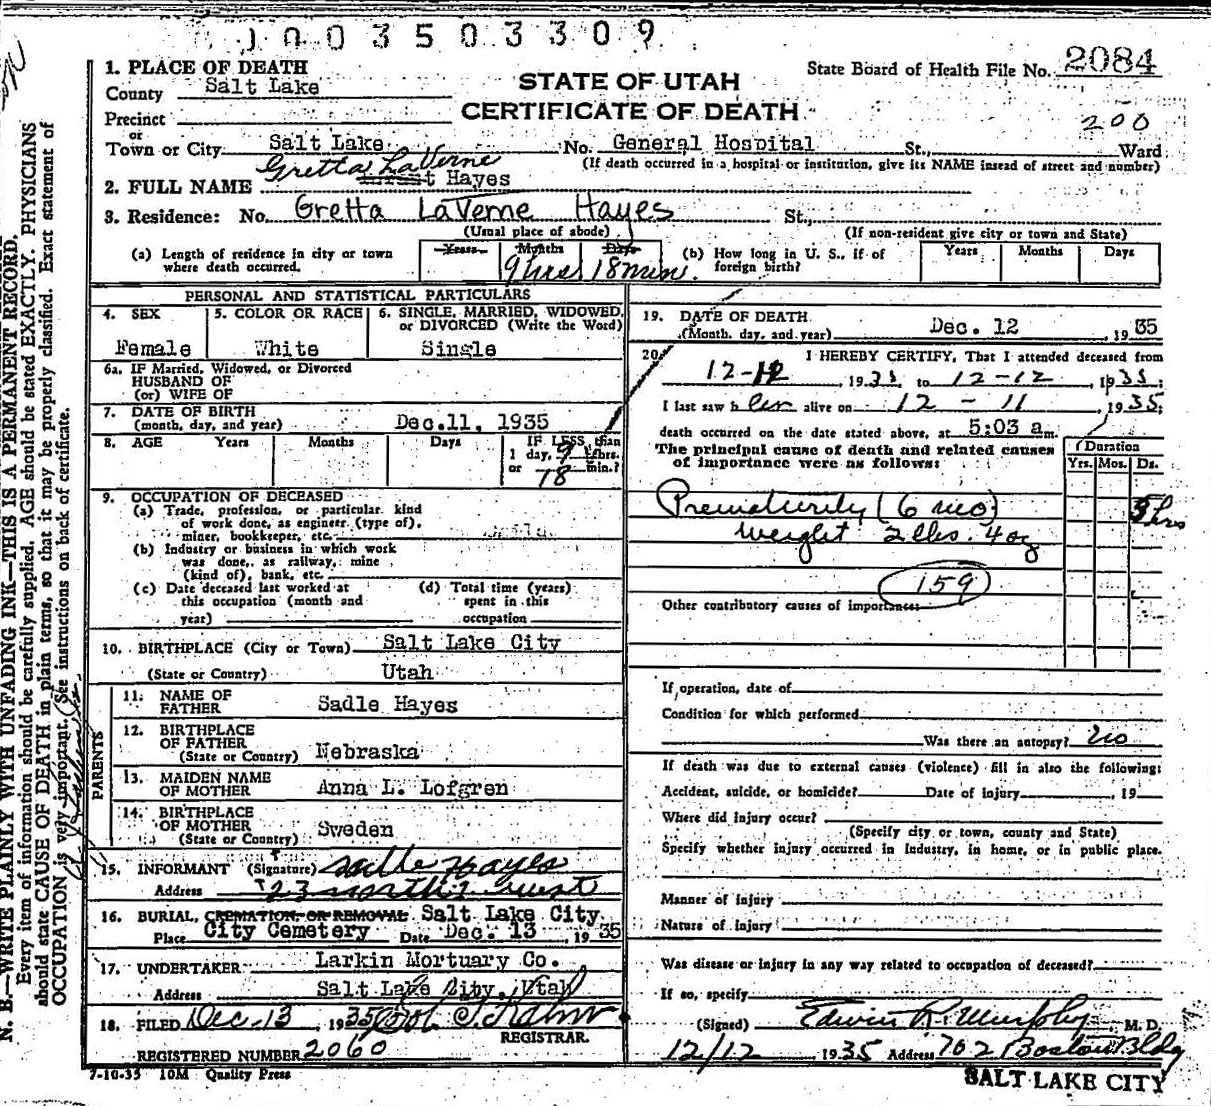 1003503309
1. PLACE OF DEATH
County Salt Lake
Precinct
or
Town or City Salt Lake No. General Hospital St., Ward
STATE OF UTAH
CERTIFICATE OF DEATH
State Board of Health File No. 2084
200
(If death occurred in a hospital or institution, give its NAME insead of street and number)
Gretta LaVerne
2. FULL NAME Infant Hayes
3. Residence: No. Gretta LaVerne Hayes St.,
(Usual place of abode)
(If non-resident give city or town and State)
(a) Length of residence in city or town where death occurred.
Years Months Days
9 hrs 18 min.
(b) How long in U. S., if of foreign birth?
Years Months Days
PERSONAL AND STATISTICAL PARTICULARS
4. SEX
Female
5. COLOR OR RACE
White
6. SINGLE, MARRIED, WIDOWED, or DIVORCED (Write the Word)
Single
6a. IF Married, Widowed, or Divorced
HUSBAND OF
(or) WIFE OF
7. DATE OF BIRTH
(month, day, and year) Dec. 11, 1935
8. AGE Years Months Days
IF LESS than
1 day, 9 hrs.
or 18 min.?
9. OCCUPATION OF DECEASED
(a) Trade, profession, or particular kind
of work done, as engineer (type of),
miner, bookkeeper, etc.
(b) Industry or business in which work
was done, as railway, mine
(kind of), bank, etc.
(c) Date deceased last worked at
this occupation (month and
year)
(d) Total time (years)
spent in this
occupation
10. BIRTHPLACE (City or Town) Salt Lake City
(State or Country) Utah
PARENTS
11. NAME OF
FATHER Sadle Hayes
12. BIRTHPLACE
OF FATHER
(State or Country) Nebraska
13. MAIDEN NAME
OF MOTHER Anna L. Lofgren
14. BIRTHPLACE
OF MOTHER
(State or Country) Sweden
15. INFORMANT (Signature) Sadle Hayes
Address 723 North 2 West
16. BURIAL, CREMATION, OR REMOVAL Salt Lake City
Place City Cemetery Date Dec. 13, 1935
17. UNDERTAKER Larkin Mortuary Co.
Address Salt Lake City, Utah
18. FILED Dec. 13, 1935
REGISTRAR.
REGISTERED NUMBER 2060
7-10-35 10M Quality Press
19. DATE OF DEATH
(Month, day, and year) Dec. 12, 1935
20. I HEREBY CERTIFY, That I attended deceased from
12-12, 1935, to 12-12, 1935;
I last saw her alive on 12-11, 1935;
death occurred on the date stated above, at 5:03 a m.
The principal cause of death and related causes
of importance were as follows:
Duration
Yrs. Mos. Ds.
Prematurity (6 mo) hrs
Weight 2 lbs. 4 oz
159
Other contributory causes of importance:
If operation, date of
Condition for which performed
Was there an autopsy? no
If death was due to external causes (violence) fill in also the following:
Accident, suicide, or homicide? Date of injury , 19
Where did injury occur?
(Specify city or town, county and State)
Specify whether injury occurred in industry, in home, or in public place.
Manner of injury
Nature of injury
Was disease or injury in any way related to occupation of deceased?
If so, specify
(Signed) Edwin R. Murphy, M. D.
12/12 1935 Address 702 Boston Bldg
SALT LAKE CITY
N. B.—WRITE PLAINLY WITH UNFADING INK—THIS IS A PERMANENT RECORD.
Every item of information should be carefully supplied. AGE should be stated EXACTLY. PHYSICIANS
should state CAUSE OF DEATH in plain terms, so that it may be properly classified. Exact statement of
OCCUPATION is very important. See instructions on back of certificate.